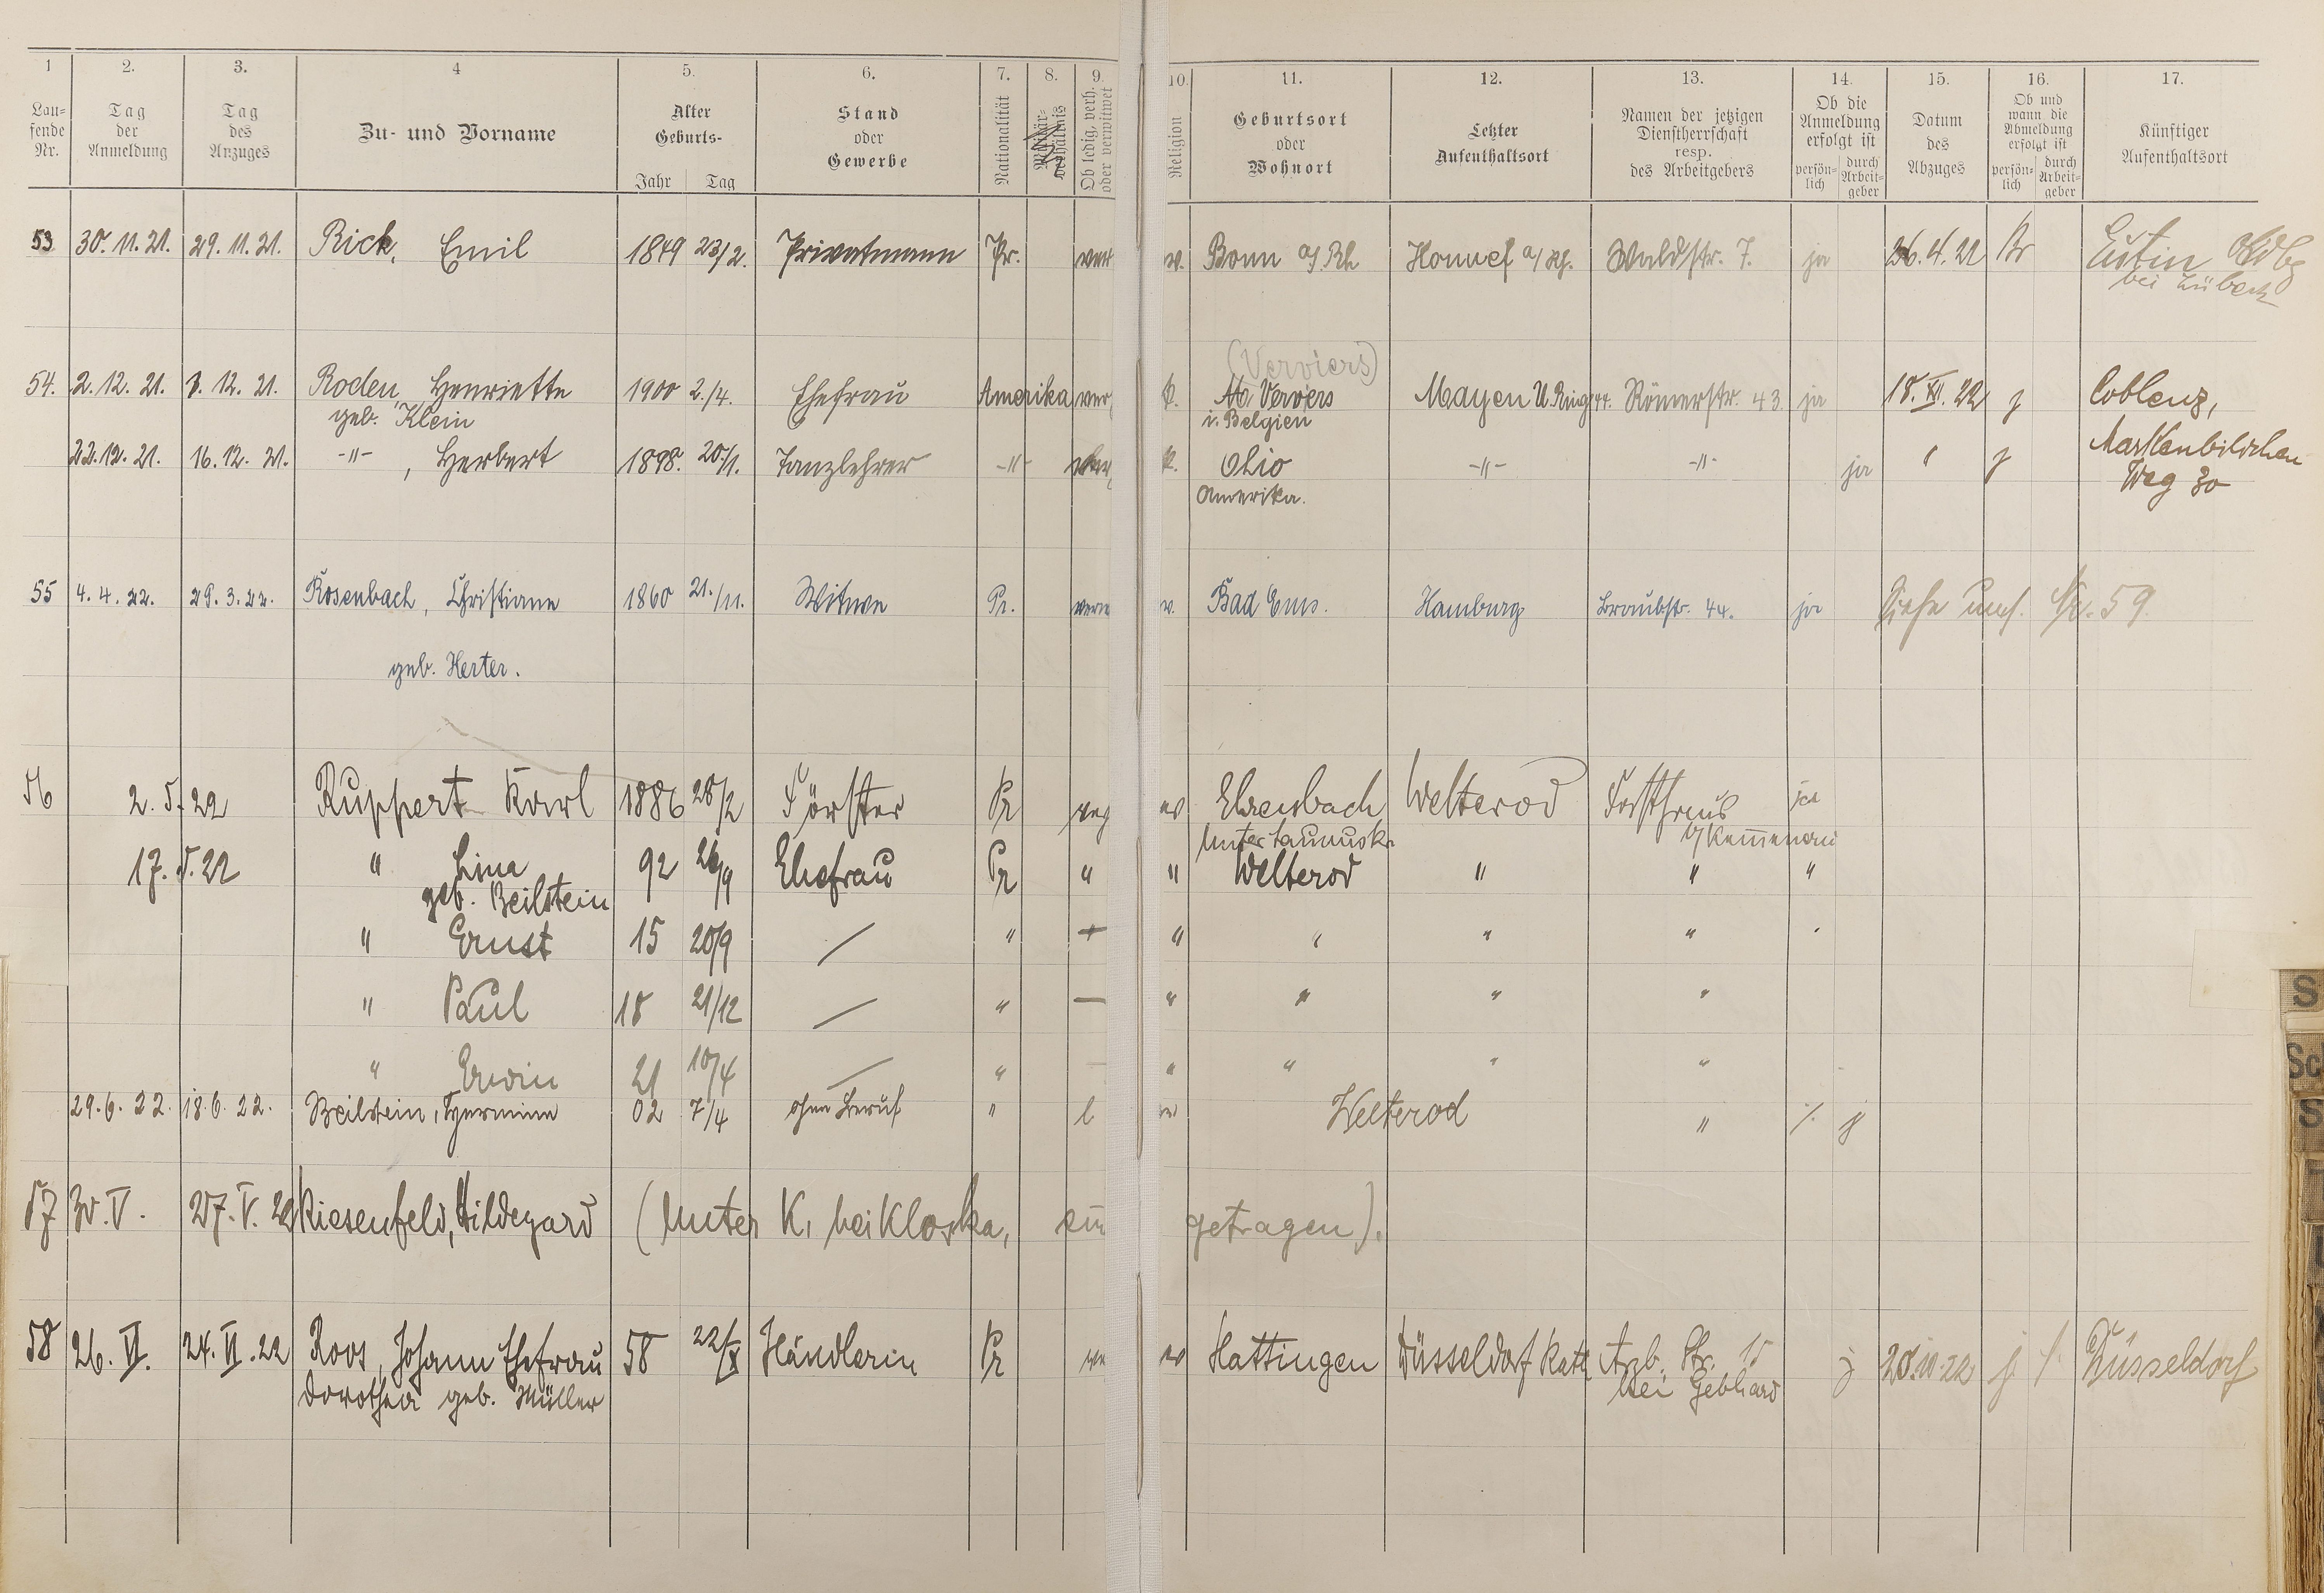 1 2. 3. 4 5. 6. 7. 8. 9. 10. 11. 12. 13. 14. 15. 16. 17.
Lau=
fende
Nr.
Tag
der
Anmeldung
Tag
des
Anzuges
Zu- und Vorname
Alter
Geburts-
Jahr Tag
Stand
oder
Gewerbe
Nationalität
Militär-
verhältnis
Ob ledig, verh.
oder verwitwet
Religion
Geburtsort
oder
Wohnort
Letzter
Aufenthaltsort
Namen der jetzigen
Dienstherrschaft
resp.
des Arbeitgebers
Ob die
Anmeldung
erfolgt ist
persön-
lich
durch
Arbeit-
geber
Datum
des
Abzuges
Ob und
wann die
Abmeldung
erfolgt ist
persön-
lich
durch
Arbeit-
geber
Künftiger
Aufenthaltsort
53 30. 11. 21. 29. 11. 21. Rick, Emil 1849 23/2. Privatmann Pr. Bonn a/Rh Honnef a/Rh. Waldstr. 7. ja 26. 4. 22 Eutin Oldbg
bei Lübeck
(Verviers)
54. 2. 12. 21. 1. 12. 21. Roden, Henriette 1900 2./4. Ehefrau Amerika ver k. Verviers Mayen U. Ring 44. Römerstr. 43. ja 18. XII. 22 j Coblenz,
geb. Klein i. Belgien
22. 12. 21. 16. 12. 21. -"- , Herbert 1898. 20/1. Tanzlehrer -"- k. Ohio -"- -"- ja " j Markenbildchen
Amerika. Weg 30
55 4. 4. 22. 29. 3. 22. Rosenbach, Christiane 1860 21./11. Witwe Pr. Bad Ems. Hamburg Braubstr. 44. ja Siehe Nr. 59.
geb. Herter.
56 2. 5. 22 Ruppert Karl 1886 28/2 Förster Pr Welterod Forsthaus ja
Untertaunuskr. b/Kemmenau
17. 5. 22 " Lina 92 26/9 Ehefrau Pr " " Welterod " " "
geb. Beilstein
" Ernst 15 20/9 / " + " " " " "
" Paul 18 21/12 / " — " " " "
" Erwin 21 10/4 / " — " " " "
29. 6. 22. 18. 6. 22. Beilstein, Hermine 02 7/4 ohne Beruf " l Welterod " /. j
57 30. V. 27. V. 22 Riesenfeld, Hildegard (Unter K, bei Kloska, ein getragen).
58 26. VI. 24. VI. 22 Roos, Johann Ehefrau 58 22/X Händlerin Pr Hattingen Düsseldorf Arzb. Str. 15 j 28. 10. 22 j Düsseldorf
Dorothea geb. Müller bei Gebhard
S
Sch
S